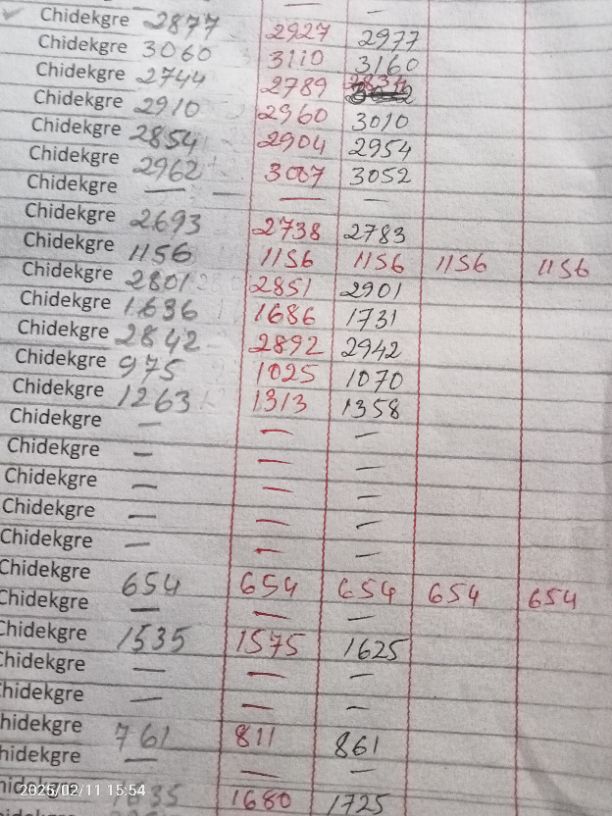 — —
Chidekgre 2877 2927 2977
Chidekgre 3060 3110 3160
Chidekgre 2744 2789 2834
Chidekgre 2910 2960 3010
Chidekgre 2854 2904 2954
Chidekgre 2962 3007 3052
Chidekgre — — —
Chidekgre 2693 2738 2783
Chidekgre 1156 1156 1156 1156 1156
Chidekgre 2801 2851 2901
Chidekgre 1636 1686 1731
Chidekgre 2842 2892 2942
Chidekgre 975 1025 1070
Chidekgre 1263 1313 1358
Chidekgre — — —
Chidekgre — — —
Chidekgre — — —
Chidekgre — — —
Chidekgre — — —
Chidekgre 654 654 654 654 654
Chidekgre — — —
Chidekgre 1535 1575 1625
Chidekgre — — —
hidekgre — — —
hidekgre 761 811 861
hidekgre — — —
1635 1680 1725
2026/02/11 15:54